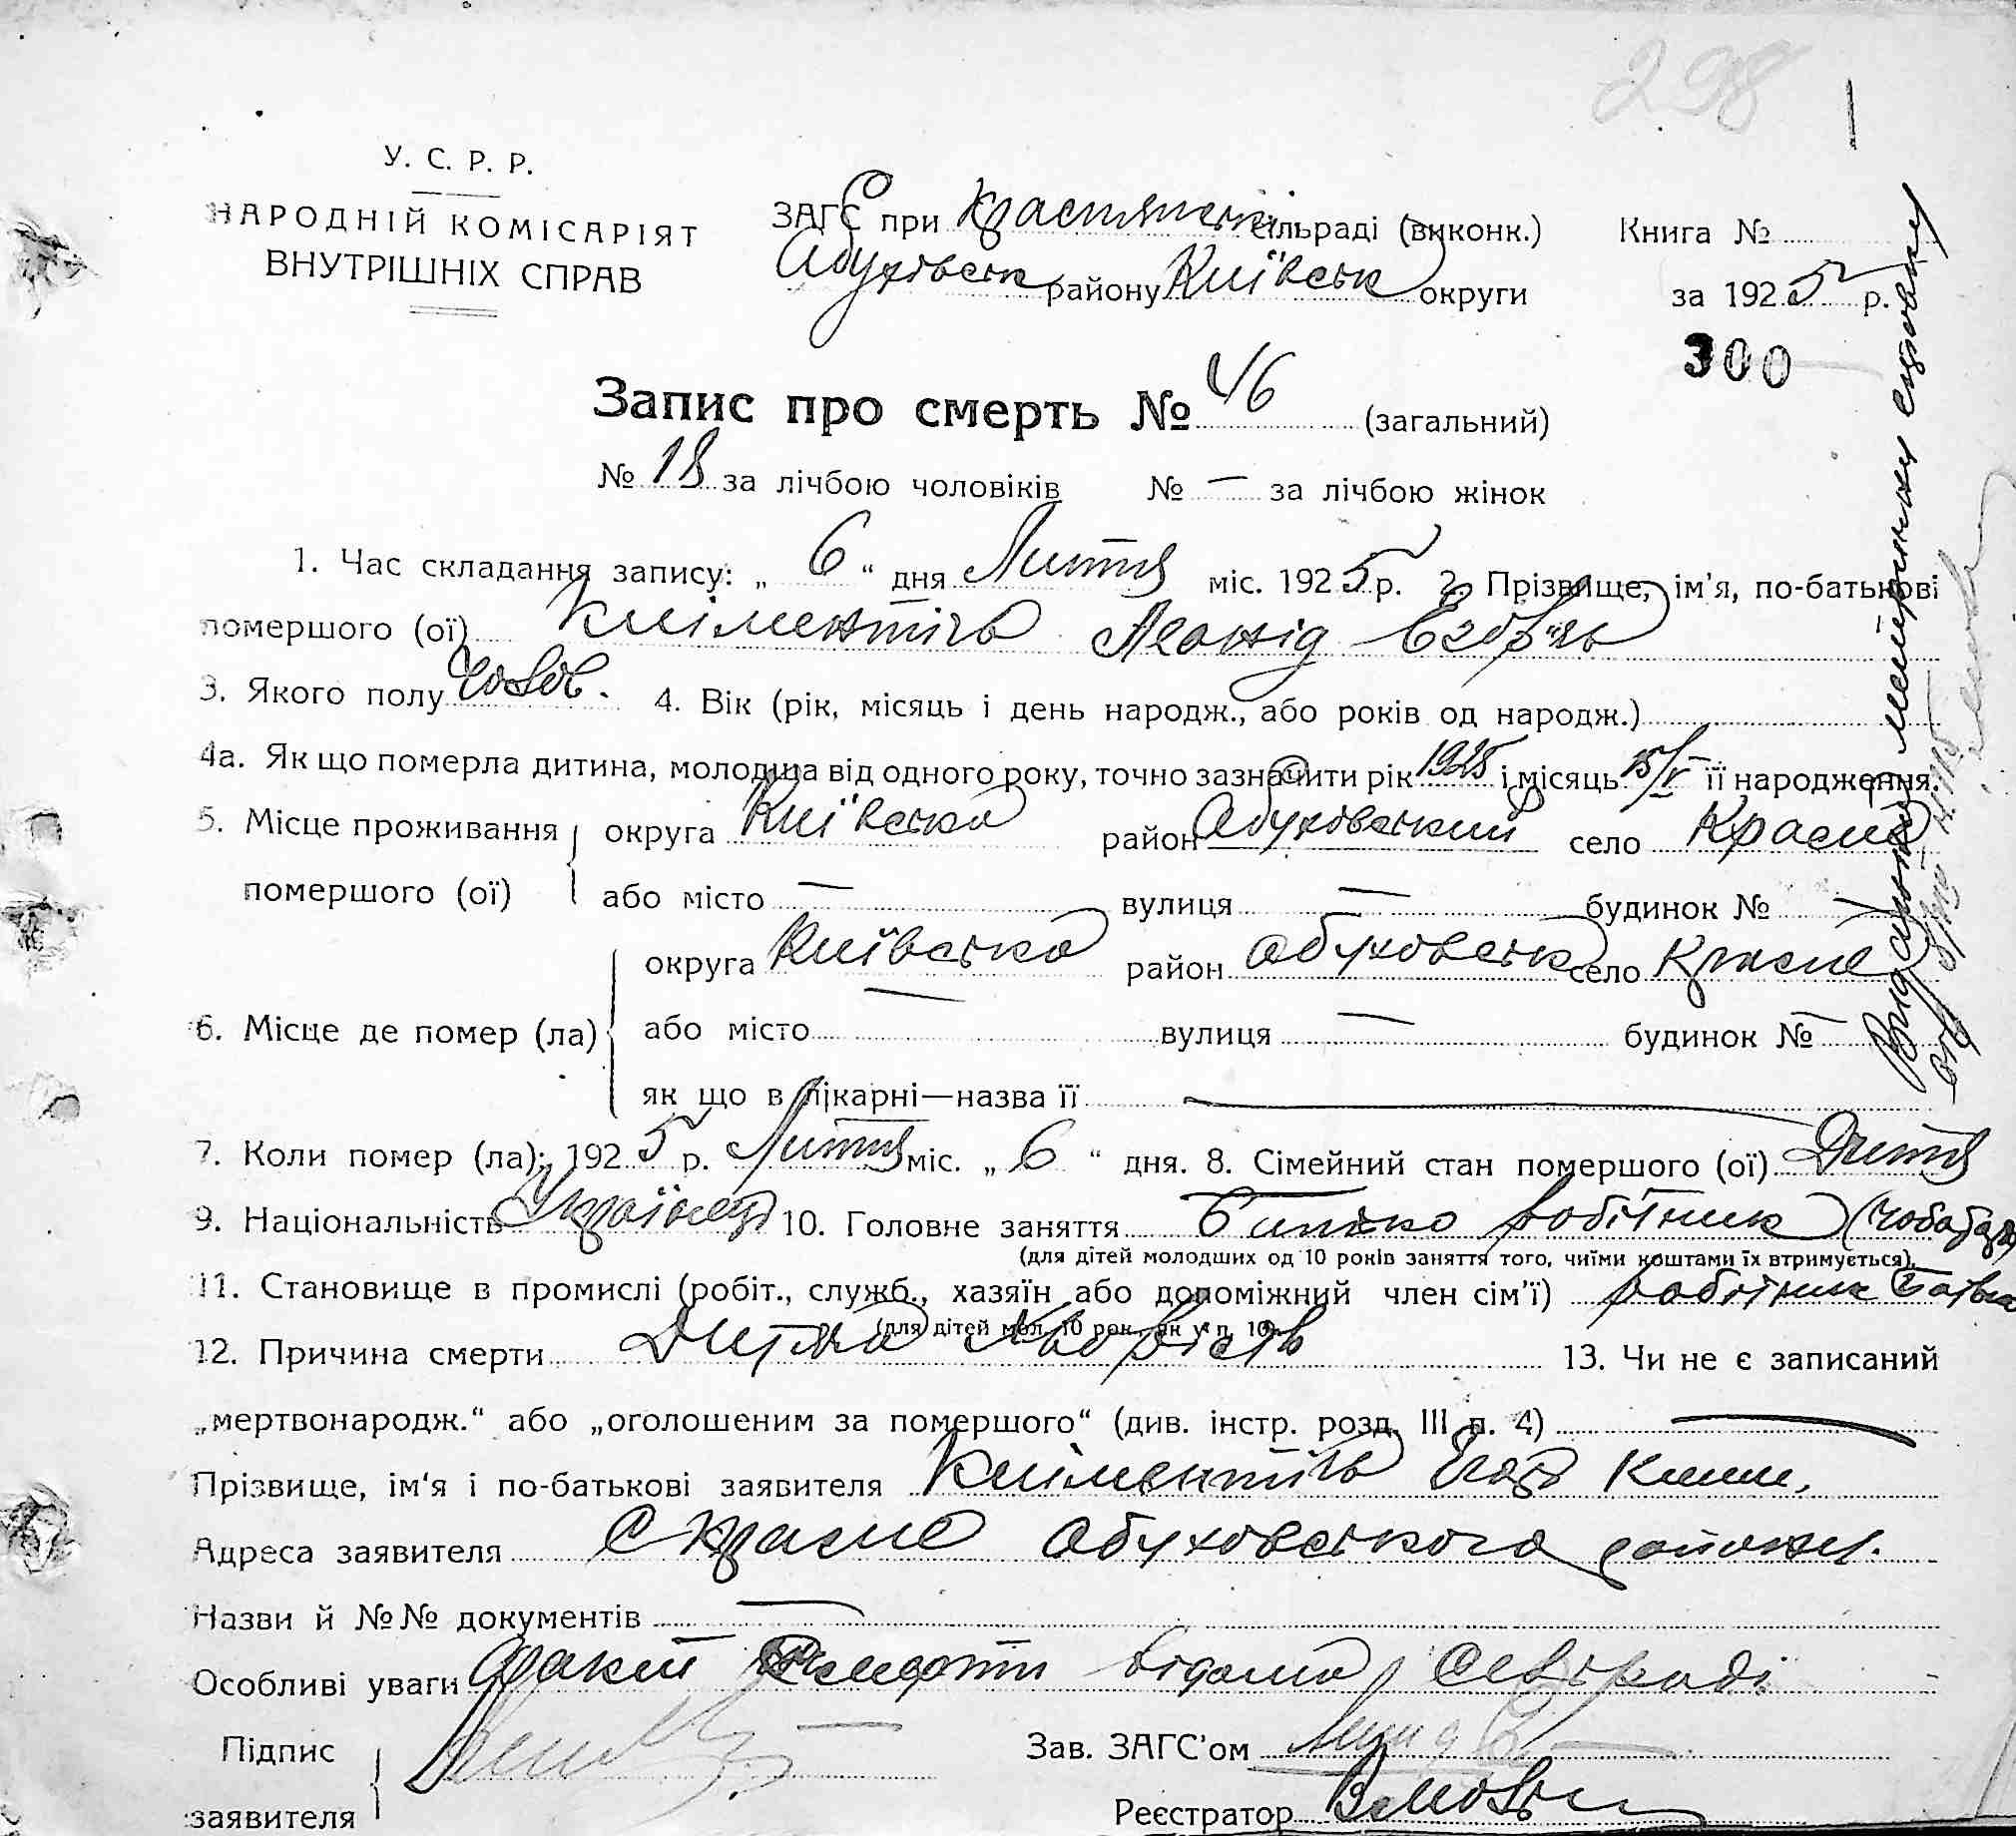 298
У. С. Р. Р.
НАРОДНІЙ КОМІСАРІЯТ
ВНУТРІШНІХ СПРАВ
ЗАГС при Краснянськ сільраді (виконк.)
Обухівськ району Київськ округи
Книга №
за 1925 р.
300
Запис про смерть № 46 (загальний)
№ 18 за лічбою чоловіків № — за лічбою жінок
1. Час складання запису: „ 6 “ дня Липня міс. 1925 р. 2. Прізвище, ім'я, по-батькові
помершого (ої) Климентіїв Леонід
3. Якого полу Чолов. 4. Вік (рік, місяць і день народж., або років од народж.)
4а. Як що померла дитина, молодша від одного року, точно зазначити рік 1925 і місяць 15/V її народження.
5. Місце проживання округа Київська район Обухівський село Красне
помершого (ої) або місто — вулиця — будинок № —
округа Київська район Обуховськ село Красне
6. Місце де помер (ла) або місто — вулиця — будинок № —
як що в лікарні—назва її —
7. Коли помер (ла): 1925 р. Липня міс. „ 6 “ дня. 8. Сімейний стан помершого (ої) Дитя
9. Національність Українец 10. Головне заняття Батько робітник
(для дітей молодших од 10 років заняття того, чиїми коштами їх втримується).
11. Становище в промислі (робіт., служб., хазяїн або допоміжний член сім'ї) робітник Батько
(для дітей мол. 10 рок. як у п. 10)
12. Причина смерти Дитяча Хворість 13. Чи не є записаний
„мертвонародж.“ або „оголошеним за помершого“ (див. інстр. розд. III п. 4) —
Прізвище, ім'я і по-батькові заявителя Климентіїв
Адреса заявителя с Красне Обуховського району.
Назви й №№ документів —
Особливі уваги Факт смерти відомо Сельраді
Підпис
заявителя
Зав. ЗАГС'ом
Реєстратор